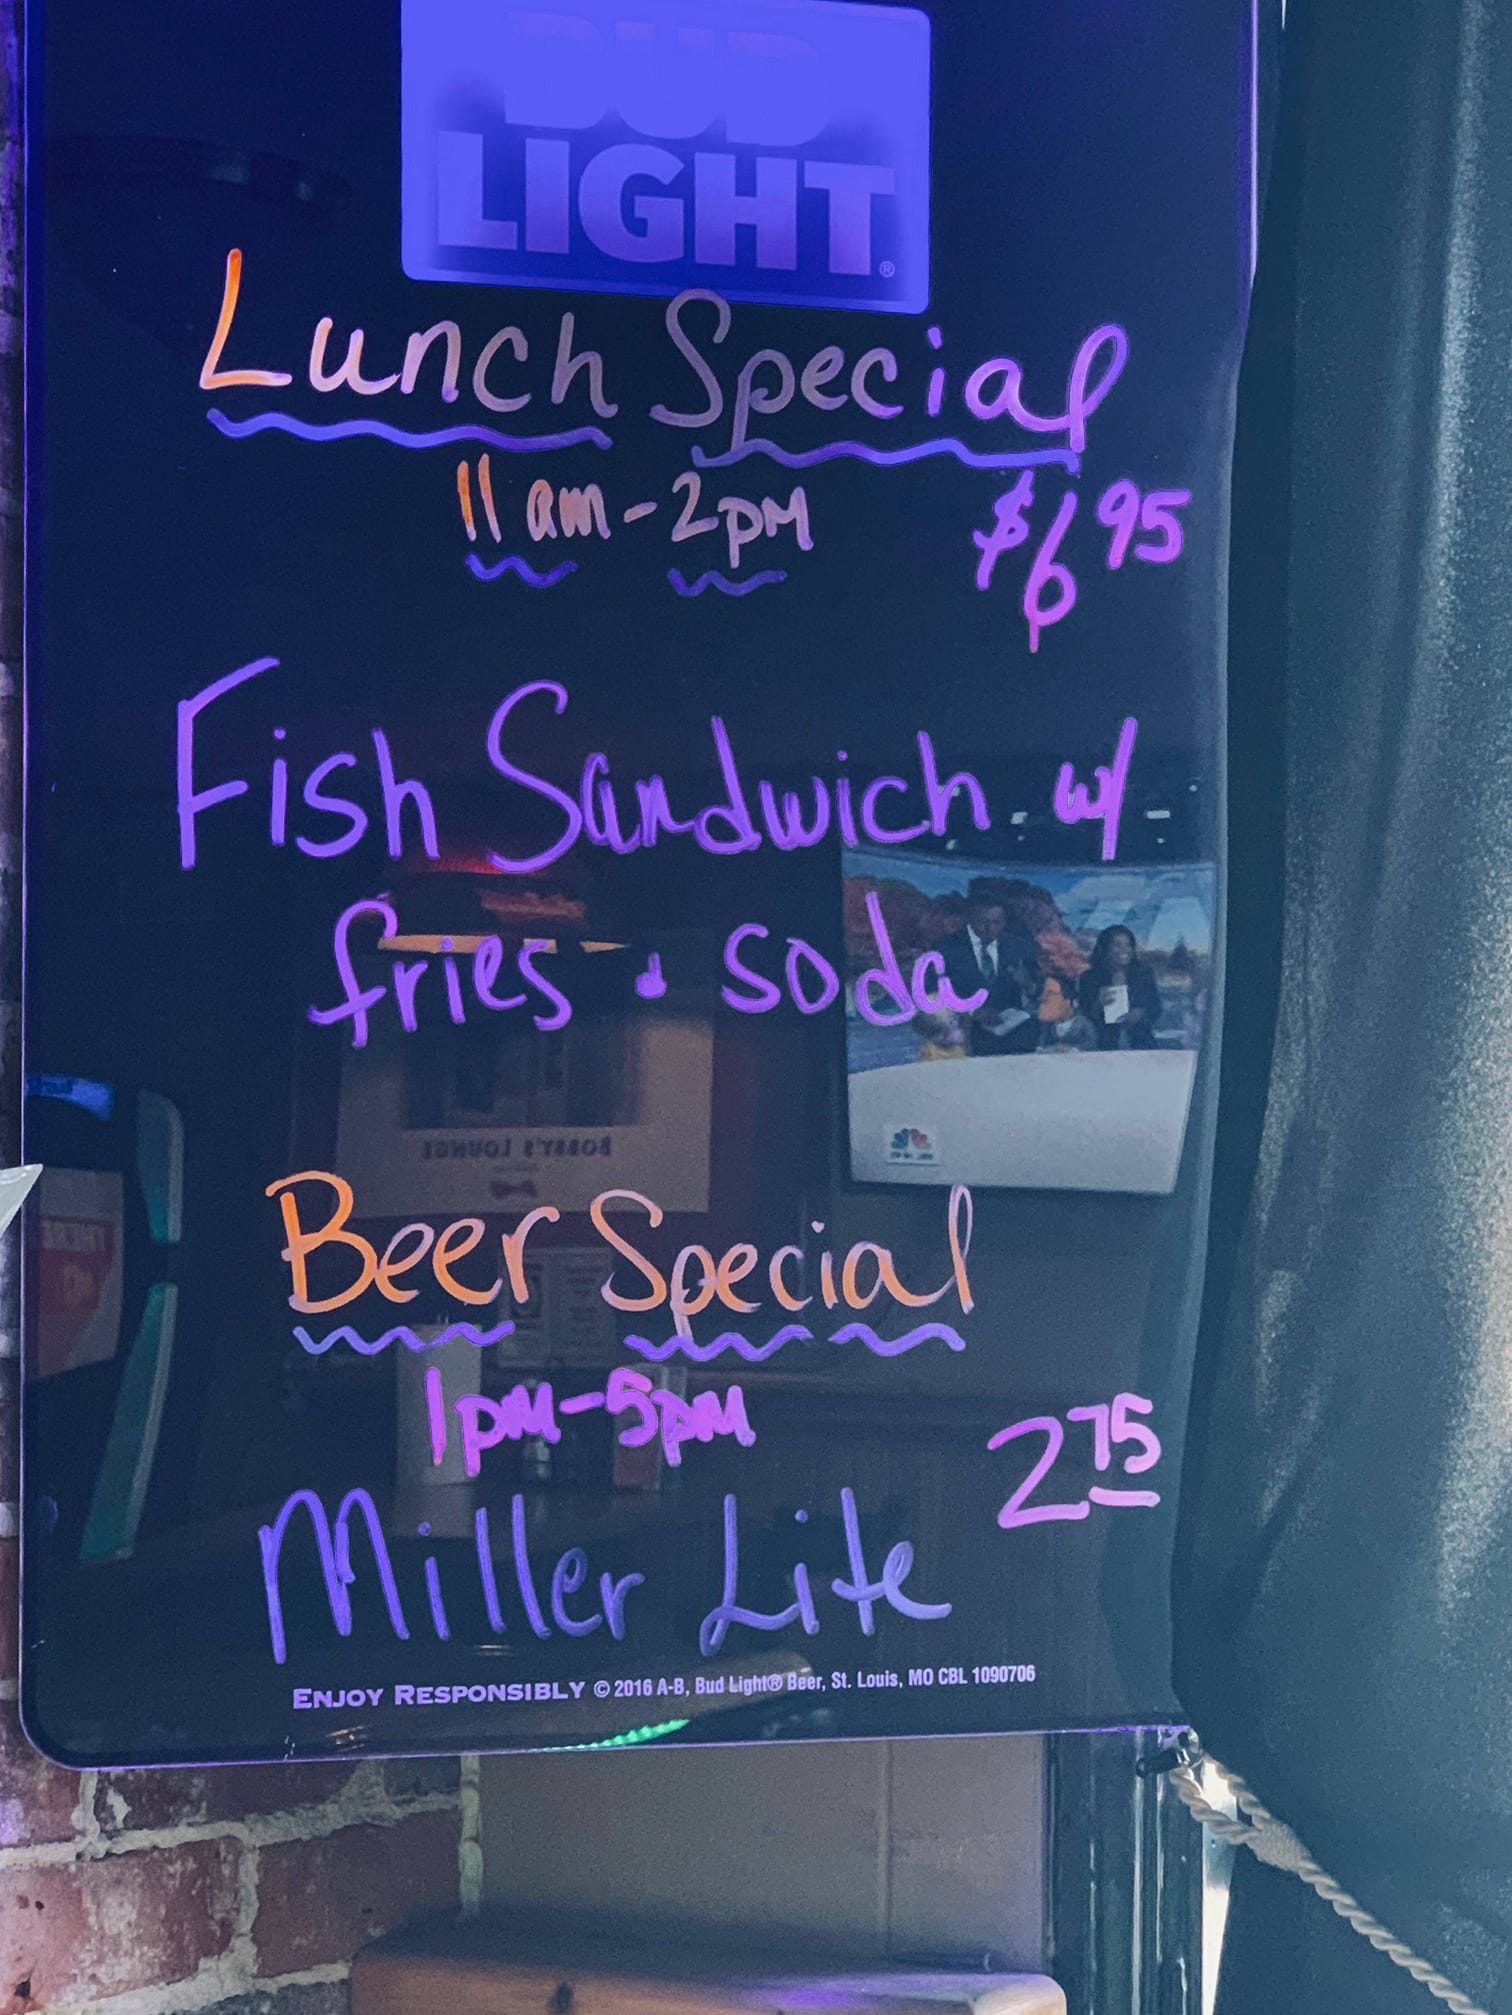 BUD
LIGHT®
Lunch Special
11am-2pm $6 95
Fish Sandwich w/
fries & soda
BOBBY'S LOUNGE
Beer Special
1pm-5pm 2 75
Miller Lite
ENJOY RESPONSIBLY © 2016 A-B, Bud Light® Beer, St. Louis, MO CBL 1090706